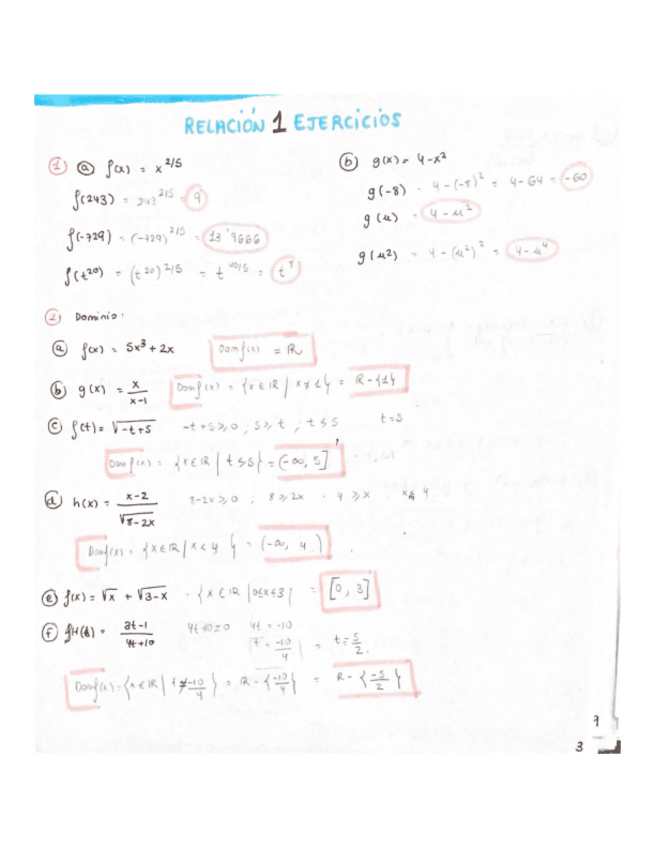 RELACIÓN 1 EJERCICIOS
1 a f(x) = x^2/5
f(243) = 243^2/5 = 9
f(-729) = (-729)^2/5 = 13'9666
f(t^20) = (t^20)^2/5 = t^40/5 = t^8
b g(x) = 4-x²
g(-8) = 4-(-8)² = 4-64 = -60
g(u) = 4-u²
g(u²) = 4-(u²)² = 4-u⁴
2 Dominio:
a f(x) = 5x³+2x Domf(x) = R
b g(x) = x/x-1 Domf(x) = {x∈R | x≠1} = R-{1}
c f(t) = √-t+5 -t+5≥0; 5≥t; t≤5 t=5
Domf(x) = {x∈R | t≤5} = (-∞, 5]
d h(x) = x-2/√8-2x 8-2x≥0; 8≥2x 4≥x x≤4
Domf(x) = {x∈R | x<4} = (-∞, 4)
e f(x) = √x + √3-x {x∈R | 0≤x≤3} = [0, 3]
f H(t) = 3t-1/4t+10 4t+10=0 4t=-10
t = -10/4 = t=5/2
Domf(x) = {x∈R | t≠-10/4} = R-{-10/4} = R-{-5/2}
7
3